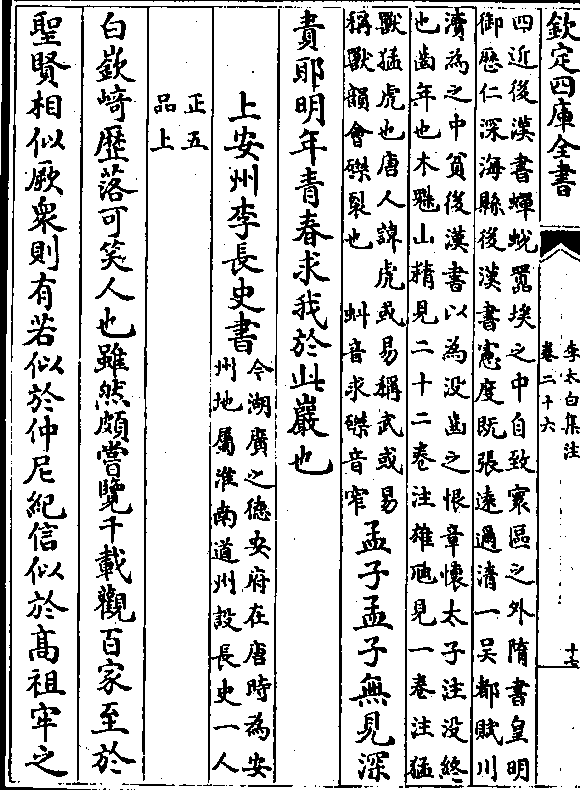 欽定四庫全書
李太白集注
卷二十六
十七
四近後漢書蟬蛻囂埃之中自致寰區之外隋書皇明
御歷仁深海縣後漢書憲度既張遠邇清一吳都賦川
瀆為之中貧後漢書以為没齒之恨章懷太子注没終
也齒年也木魅山精見二十二卷注雄虺見一卷注猛
獸猛虎也唐人諱虎或易稱武或易
稱獸韻會磔裂也　虯音求磔音窄
孟子孟子無見深
責耶明年青春求我於此巖也
上安州李長史書
今湖廣之德安府在唐時為安
州地屬淮南道州設長史一人
正五
品上
白嶔崎歷落可笑人也雖然頗嘗覽千載觀百家至於
聖賢相似厥衆則有若似於仲尼紀信似於高祖牢之